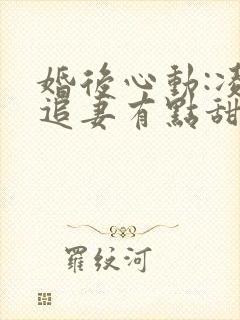 婚後心動:凌
追妻有點甜
羅紋河